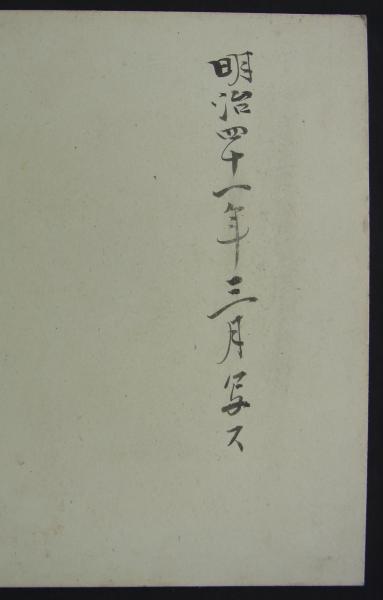 明治四十一年三月写ス